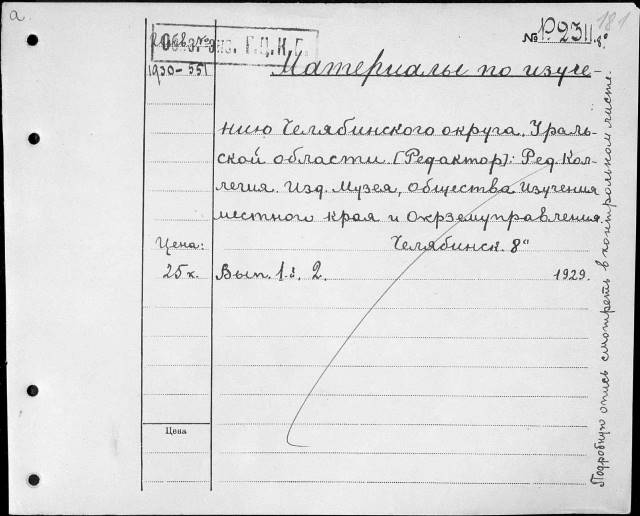 а
181
№ Р2311 8°
Обяз. экз. Г.Ц.К.П.
1930-551
Материалы по изуче-
нию Челябинского округа, Ураль-
ской области. [Редактор]: Ред. Кол-
легия. Изд. Музея, общества Изучения
местного края и Окрземуправления.
Челябинск. 8°
Цена:
25 к.
Вып. 1. i. 2.
1929.
Цена
Подробную опись смотреть в контрольном листе.